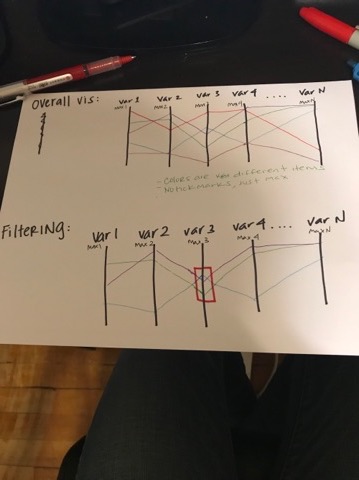 Overall Vis:
var 1 var 2 var 3 var 4 .... var N
max1 max2 max3 max4 maxN
- Colors are different items
- No tick marks, just max
Filtering:
var 1 var 2 var 3 var 4 .... var N
max1 max2 max3 max4 maxN